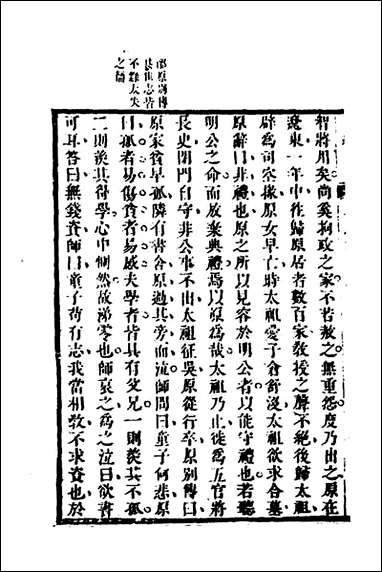 邴原別傳
甚佳志皆
不錄太失
之簡
智將用矣尚奚拘政之家不若赦之無重怨度乃出之原在
遼東一年中往歸原居者數百家敎授之聲不絕後歸太祖
辟爲司空掾原女早亡時太祖愛子倉舒沒太祖欲求合葬
原辭曰非禮也原之所以見容於明公者以能守禮也若聽
明公之命而放棄典禮焉以原爲哉太祖乃止徙爲五官將
長史閉門自守非公事不出太祖征吳原從行卒原別傳曰
原家貧早孤隣有書舍原過其旁而泣師問曰童子何悲原
曰孤者易傷貧者易感夫學者皆具有父兄一則羨其不孤
二則羨其得學心中惻然故涕零也師哀之爲之泣曰欲書
可耳答曰無錢資師曰童子苟有志我當相敎不求資也於